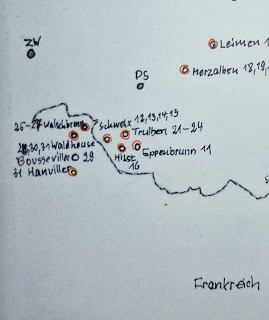 Leimen 1
ZW
Herzalben 18,19,
PS
25-27 Walschbronn
Schweix 12,13,14,15
Trulben 21-24
29,30,31 Waldhouse
Eppenbrunn 11
Bousseviller 28
Hilst
16
31 Hanviller
S
Frankreich